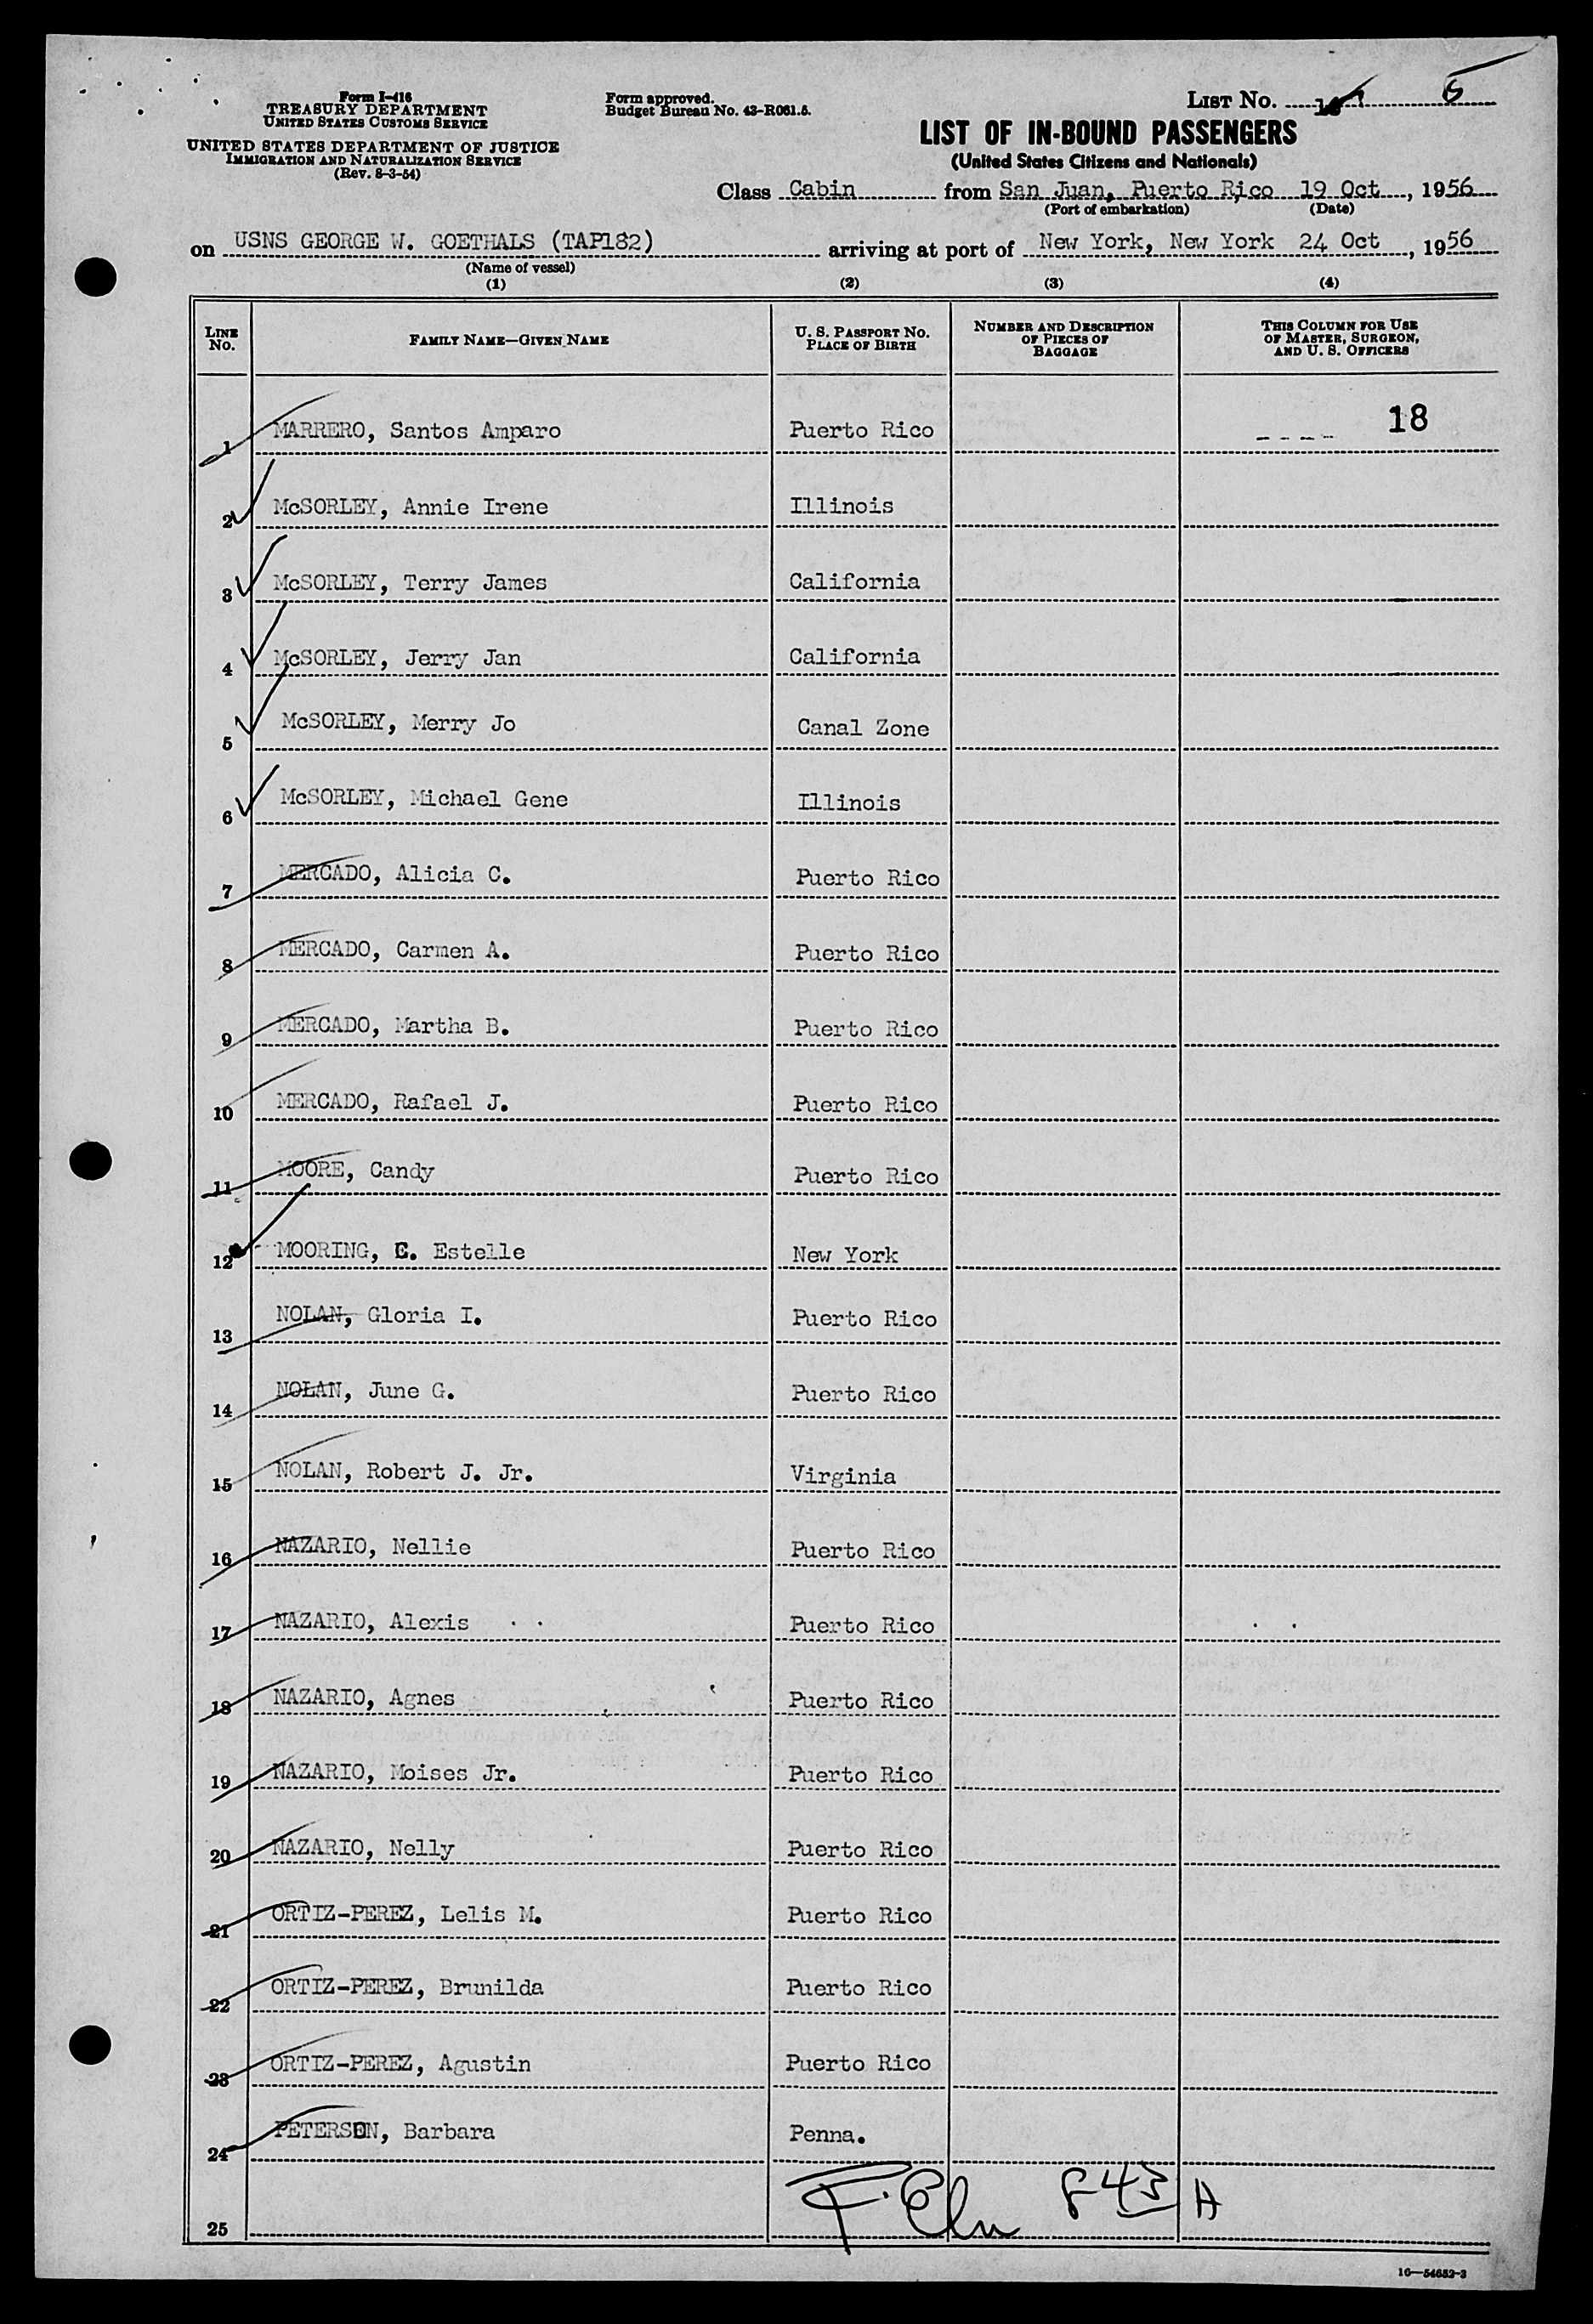 Form I-416
TREASURY DEPARTMENT
UNITED STATES CUSTOMS SERVICE
UNITED STATES DEPARTMENT OF JUSTICE
IMMIGRATION AND NATURALIZATION SERVICE
(Rev. 8-3-54)
Form approved.
Budget Bureau No. 43-R061.5.
LIST No.
LIST OF IN-BOUND PASSENGERS
(United States Citizens and Nationals)
Class Cabin from San Juan, Puerto Rico 19 Oct, 1956
(Port of embarkation) (Date)
on USNS GEORGE W. GOETHALS (TAP182) arriving at port of New York, New York 24 Oct, 1956
(Name of vessel)
(1) (2) (3) (4)
LINE No. FAMILY NAME—GIVEN NAME U. S. PASSPORT NO. PLACE OF BIRTH NUMBER AND DESCRIPTION OF PIECES OF BAGGAGE THIS COLUMN FOR USE OF MASTER, SURGEON, AND U. S. OFFICERS
1 MARRERO, Santos Amparo Puerto Rico 18
2 McSORLEY, Annie Irene Illinois
3 McSORLEY, Terry James California
4 McSORLEY, Jerry Jan California
5 McSORLEY, Merry Jo Canal Zone
6 McSORLEY, Michael Gene Illinois
7 MERCADO, Alicia C. Puerto Rico
8 MERCADO, Carmen A. Puerto Rico
9 MERCADO, Martha B. Puerto Rico
10 MERCADO, Rafael J. Puerto Rico
11 MOORE, Candy Puerto Rico
12 MOORING, E. Estelle New York
13 NOLAN, Gloria I. Puerto Rico
14 NOLAN, June G. Puerto Rico
15 NOLAN, Robert J. Jr. Virginia
16 NAZARIO, Nellie Puerto Rico
17 NAZARIO, Alexis Puerto Rico
18 NAZARIO, Agnes Puerto Rico
19 NAZARIO, Moises Jr. Puerto Rico
20 NAZARIO, Nelly Puerto Rico
21 ORTIZ-PEREZ, Lelis M. Puerto Rico
22 ORTIZ-PEREZ, Brunilda Puerto Rico
23 ORTIZ-PEREZ, Agustin Puerto Rico
24 PETERSON, Barbara Penna.
843 A
25
16—54652-3